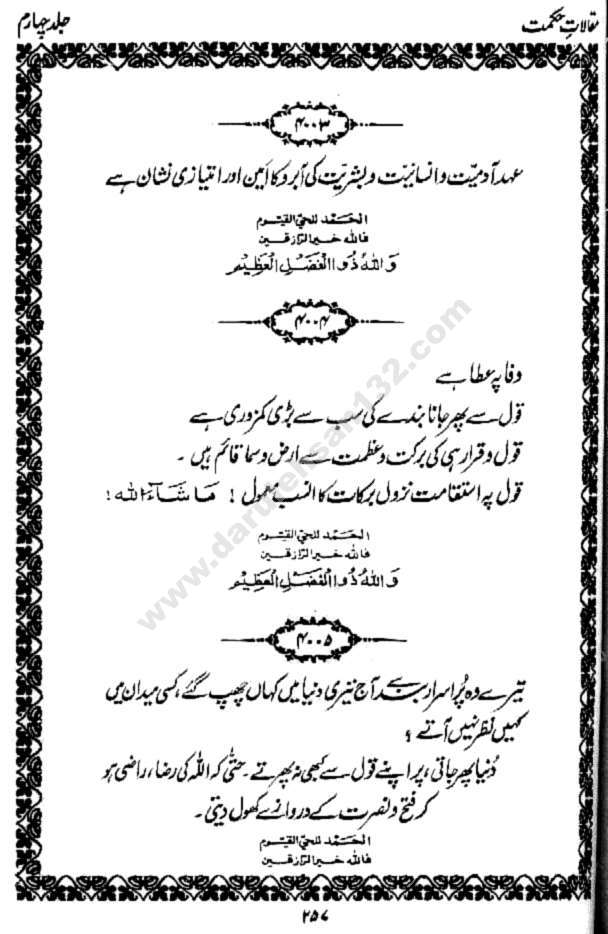 مقالاتِ حکمت
جلد چہارم
۴۰۰۳
عہد آدمیّت و انسانیّت و بشریّت کی آبرو کا امین اور امتیازی نشان ہے
الحَمد للحیّ القیّوم
فاللہ خیر الرّازقین
وَاللّٰهُ ذُو الْفَضْلِ الْعَظِیْمِ
۴۰۰۴
وفا پہ عطا ہے
قول سے پھر جانا بندے کی سب سے بڑی کمزوری ہے
قول و قرار ہی کی برکت و عظمت سے ارض و سما قائم ہیں ۔
قول پہ استقامت نزولِ برکات کا انسب معمول ! مَا شَآءَ اللہ !
الحَمد للحیّ القیّوم
فاللہ خیر الرّازقین
وَاللّٰهُ ذُو الْفَضْلِ الْعَظِیْمِ
۴۰۰۵
تیرے وہ پُراسرار بندے آج تیری دنیا میں کہاں چھپ گئے، کسی میدان میں
کہیں نظر نہیں آتے ؟
دُنیا پھر جاتی، پر اپنے قول سے کبھی نہ پھرتے ۔ حتّٰی کہ اللّٰہ کی رضا، راضی ہو
کر فتح و نصرت کے دروازے کھول دیتی ۔
الحَمد للحیّ القیّوم
فاللہ خیر الرّازقین
۲۵۷
www.darulehsan132.com